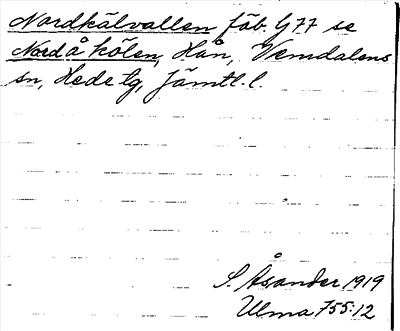 Nordkälvallen fäb. G 77 se
Nordåkölen, Hån, Vemdalens
sn, Hede tg, Jämtl. l.
S. Åsander 1919
Ulma 755:12